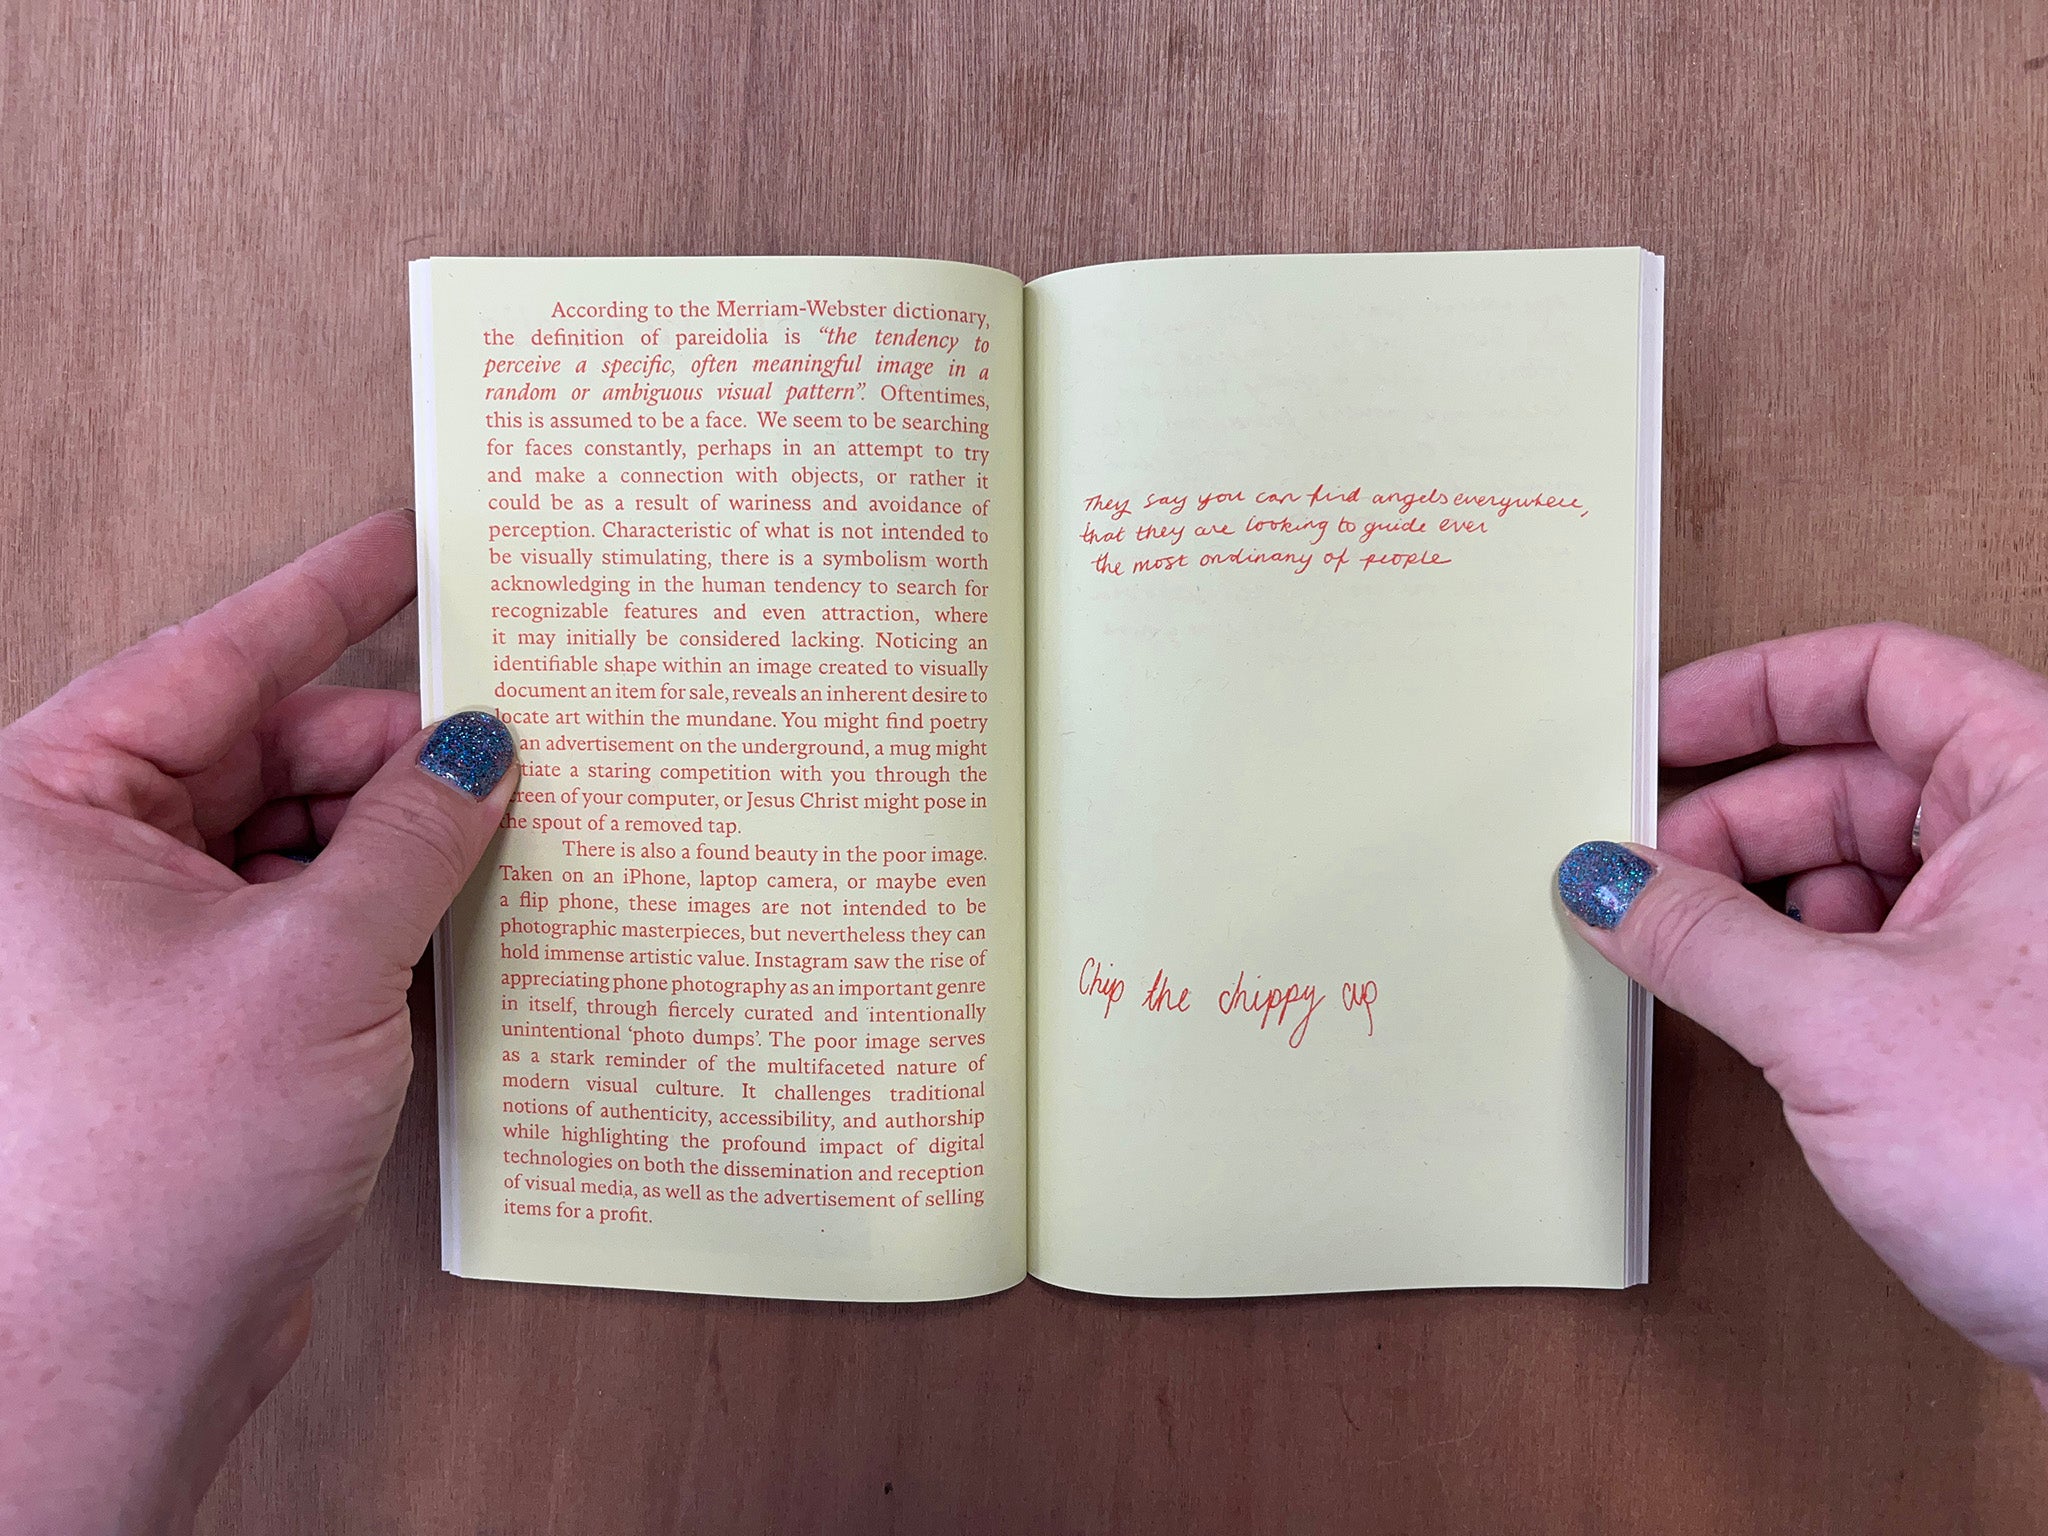 According to the Merriam-Webster dictionary,
the definition of pareidolia is “the tendency to
perceive a specific, often meaningful image in a
random or ambiguous visual pattern”. Oftentimes,
this is assumed to be a face. We seem to be searching
for faces constantly, perhaps in an attempt to try
and make a connection with objects, or rather it
could be as a result of wariness and avoidance of
perception. Characteristic of what is not intended to
be visually stimulating, there is a symbolism worth
acknowledging in the human tendency to search for
recognizable features and even attraction, where
it may initially be considered lacking. Noticing an
identifiable shape within an image created to visually
document an item for sale, reveals an inherent desire to
locate art within the mundane. You might find poetry
an advertisement on the underground, a mug might
a staring competition with you through the
screen of your computer, or Jesus Christ might pose in
the spout of a removed tap.
There is also a found beauty in the poor image.
Taken on an iPhone, laptop camera, or maybe even
a flip phone, these images are not intended to be
photographic masterpieces, but nevertheless they can
hold immense artistic value. Instagram saw the rise of
appreciating phone photography as an important genre
in itself, through fiercely curated and intentionally
unintentional ‘photo dumps’. The poor image serves
as a stark reminder of the multifaceted nature of
modern visual culture. It challenges traditional
notions of authenticity, accessibility, and authorship
while highlighting the profound impact of digital
technologies on both the dissemination and reception
of visual media, as well as the advertisement of selling
items for a profit.
They say you can find angels everywhere,
that they are looking to guide ever
the most ordinany of people
Chip the chippy cup